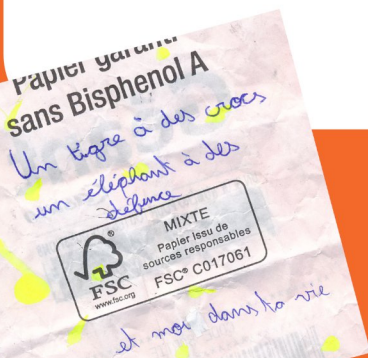 Papier garanti
sans Bisphenol A
Un tigre à des crocs
un éléphant à des
défence
MIXTE
Papier issu de
sources responsables
FSC® C017061
FSC
www.fsc.org
et moi dans ta vie